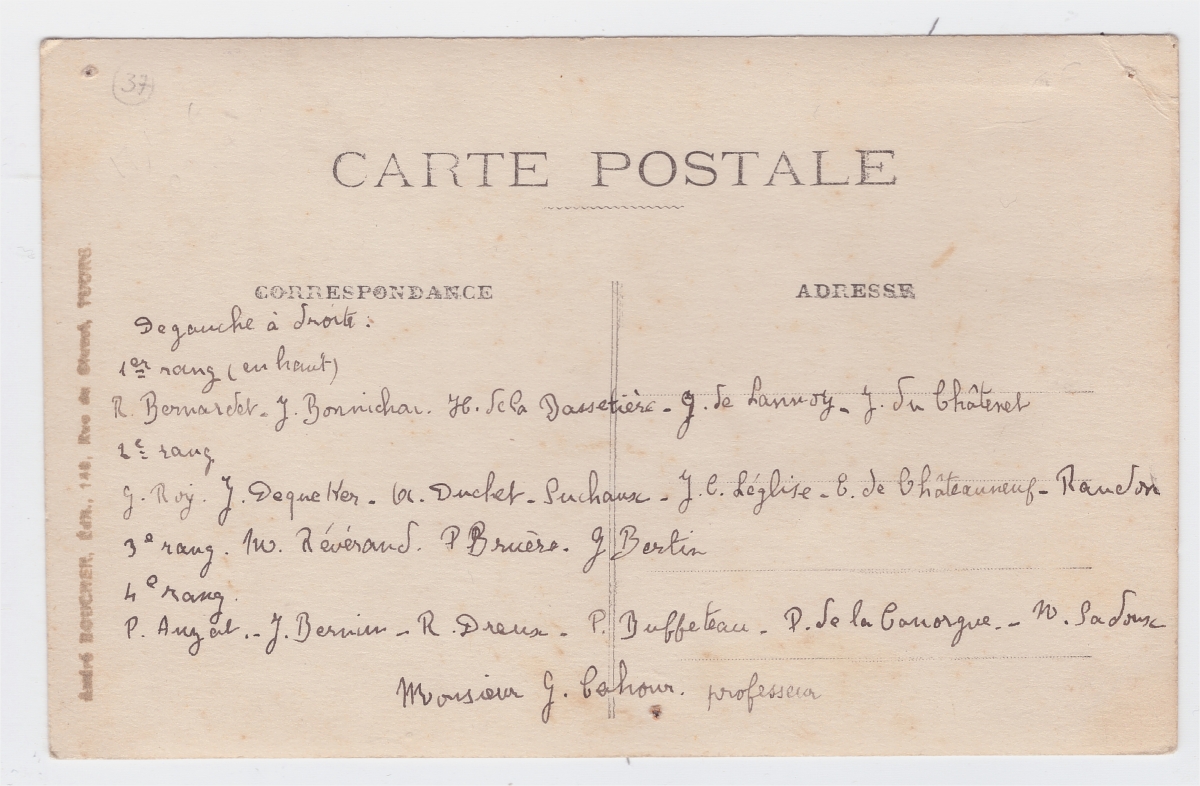 37
CARTE POSTALE
CORRESPONDANCE
ADRESSE
De gauche à droite :
1er rang (en haut)
R. Bernardet - J. Bonnichar. H. de la Bassetière - J. de Lannoy - J. du Châtenet
2e rang
G. Roy. J. Dequeker - A. Duchet - Suchaux - J. C. Léglise - E. de Châteauneuf - Randon
3e rang. M. Révérand. P. Bruère. G Bertin
4e rang.
P. Auzat. - J. Bernier - R. Dreux - P. Buffeteau - P. de la Canorgue. - Sadoux
Monsieur G. Cahour. professeur
André BOUCHER, Édit., 148, Rue du TOURS